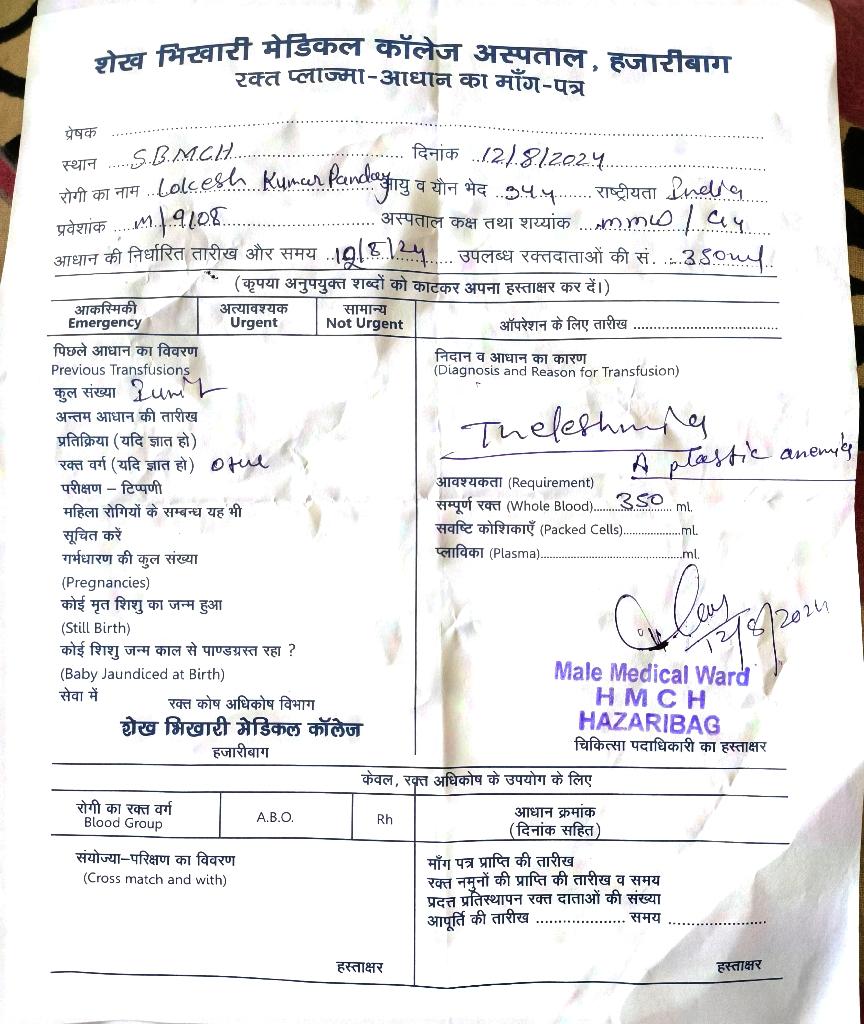 शेख भिखारी मेडिकल कॉलेज अस्पताल, हजारीबाग
रक्त प्लाज्मा-आधान का माँग-पत्र
प्रेषक
स्थान S.B.M.C.H. दिनांक 12/8/2024
रोगी का नाम Lokesh Kumar Panday आयु व यौन भेद 34 y राष्ट्रीयता India
प्रवेशांक M/9108 अस्पताल कक्ष तथा शय्यांक MMW / G4
आधान की निर्धारित तारीख और समय 12/8/24 उपलब्ध रक्तदाताओं की सं. 350ml
(कृपया अनुपयुक्त शब्दों को काटकर अपना हस्ताक्षर कर दें।)
आकस्मिकी अत्यावश्यक सामान्य
Emergency Urgent Not Urgent
ऑपरेशन के लिए तारीख
पिछले आधान का विवरण
Previous Transfusions
कुल संख्या
अन्तम आधान की तारीख
प्रतिक्रिया (यदि ज्ञात हो)
रक्त वर्ग (यदि ज्ञात हो)
परीक्षण – टिप्पणी
महिला रोगियों के सम्बन्ध यह भी
सूचित करें
गर्भधारण की कुल संख्या
(Pregnancies)
कोई मृत शिशु का जन्म हुआ
(Still Birth)
कोई शिशु जन्म काल से पाण्डग्रस्त रहा ?
(Baby Jaundiced at Birth)
सेवा में
रक्त कोष अधिकोष विभाग
शेख भिखारी मेडिकल कॉलेज
हजारीबाग
निदान व आधान का कारण
(Diagnosis and Reason for Transfusion)
A plastic anemia
आवश्यकता (Requirement)
सम्पूर्ण रक्त (Whole Blood) 350 ml.
सवष्टि कोशिकाएँ (Packed Cells) ml.
प्लाविका (Plasma) ml.
12/8/2024
Male Medical Ward
H M C H
HAZARIBAG
चिकित्सा पदाधिकारी का हस्ताक्षर
केवल, रक्त अधिकोष के उपयोग के लिए
रोगी का रक्त वर्ग
Blood Group
A.B.O.
Rh
आधान क्रमांक
(दिनांक सहित)
संयोज्या–परिक्षण का विवरण
(Cross match and with)
हस्ताक्षर
माँग पत्र प्राप्ति की तारीख
रक्त नमुनों की प्राप्ति की तारीख व समय
प्रदत्त प्रतिस्थापन रक्त दाताओं की संख्या
आपूर्ति की तारीख समय
हस्ताक्षर